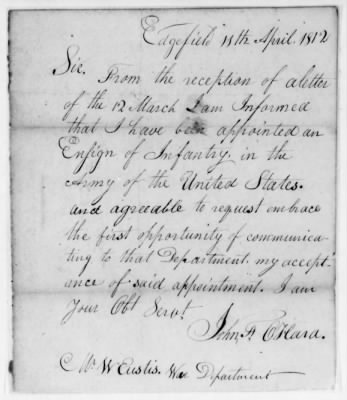 Edgefield 11th April. 1812
Sir. From the reception of a letter
of the 12 March I am Informed
that I have been appointed an
Ensign of Infantry. in the
Army of the United States.
and agreeable to request embrace
the first opportunity of communica-
ting to that Department. my accept-
ance of said appointment. I am
Your Obt Servt
John A O'Hara.
Mr W Eustis. War Department